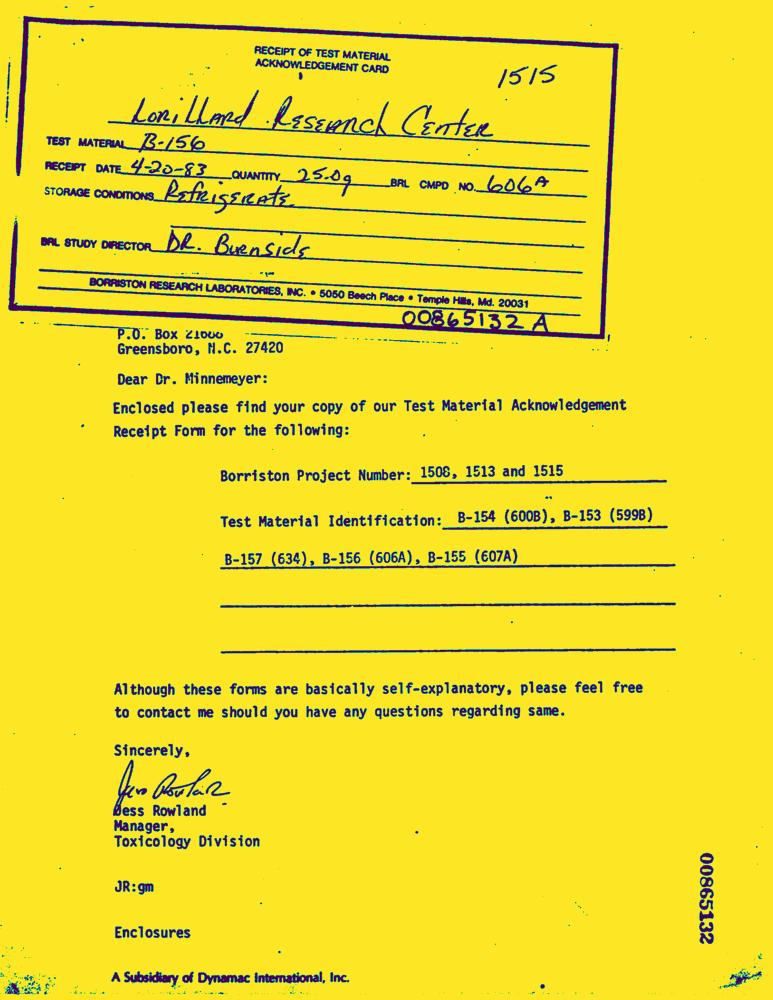 RECEIPT OF TEST MATERIAL
ACKNOWLEDGEMENT CARD
1515
Lorillard Research Center
TEST MATERIAL B-156
RECEIPT DATE 4-20-83 QUANTITY 25.0g BRL CMPD NO. 606A
STORAGE CONDITIONS Refrigerate
BRL STUDY DIRECTOR DR. Burnside
BORRISTON RESEARCH LABORATORIES, INC. • 5050 Beech Place • Temple Hills, Md. 20031
00865132 A
P.O. Box
Greensboro, N.C. 27420
Dear Dr. Minnemeyer:
Enclosed please find your copy of our Test Material Acknowledgement
Receipt Form for the following:
Borriston Project Number: 1508, 1513 and 1515
Test Material Identification: B-154 (600B), B-153 (599B)
B-157 (634), B-156 (606A), B-155 (607A)
Although these forms are basically self-explanatory, please feel free
to contact me should you have any questions regarding same.
Sincerely,
Jess Rowland
Jess Rowland
Manager,
Toxicology Division
JR:gm
Enclosures
A Subsidiary of Dynamac International, Inc.
00865132